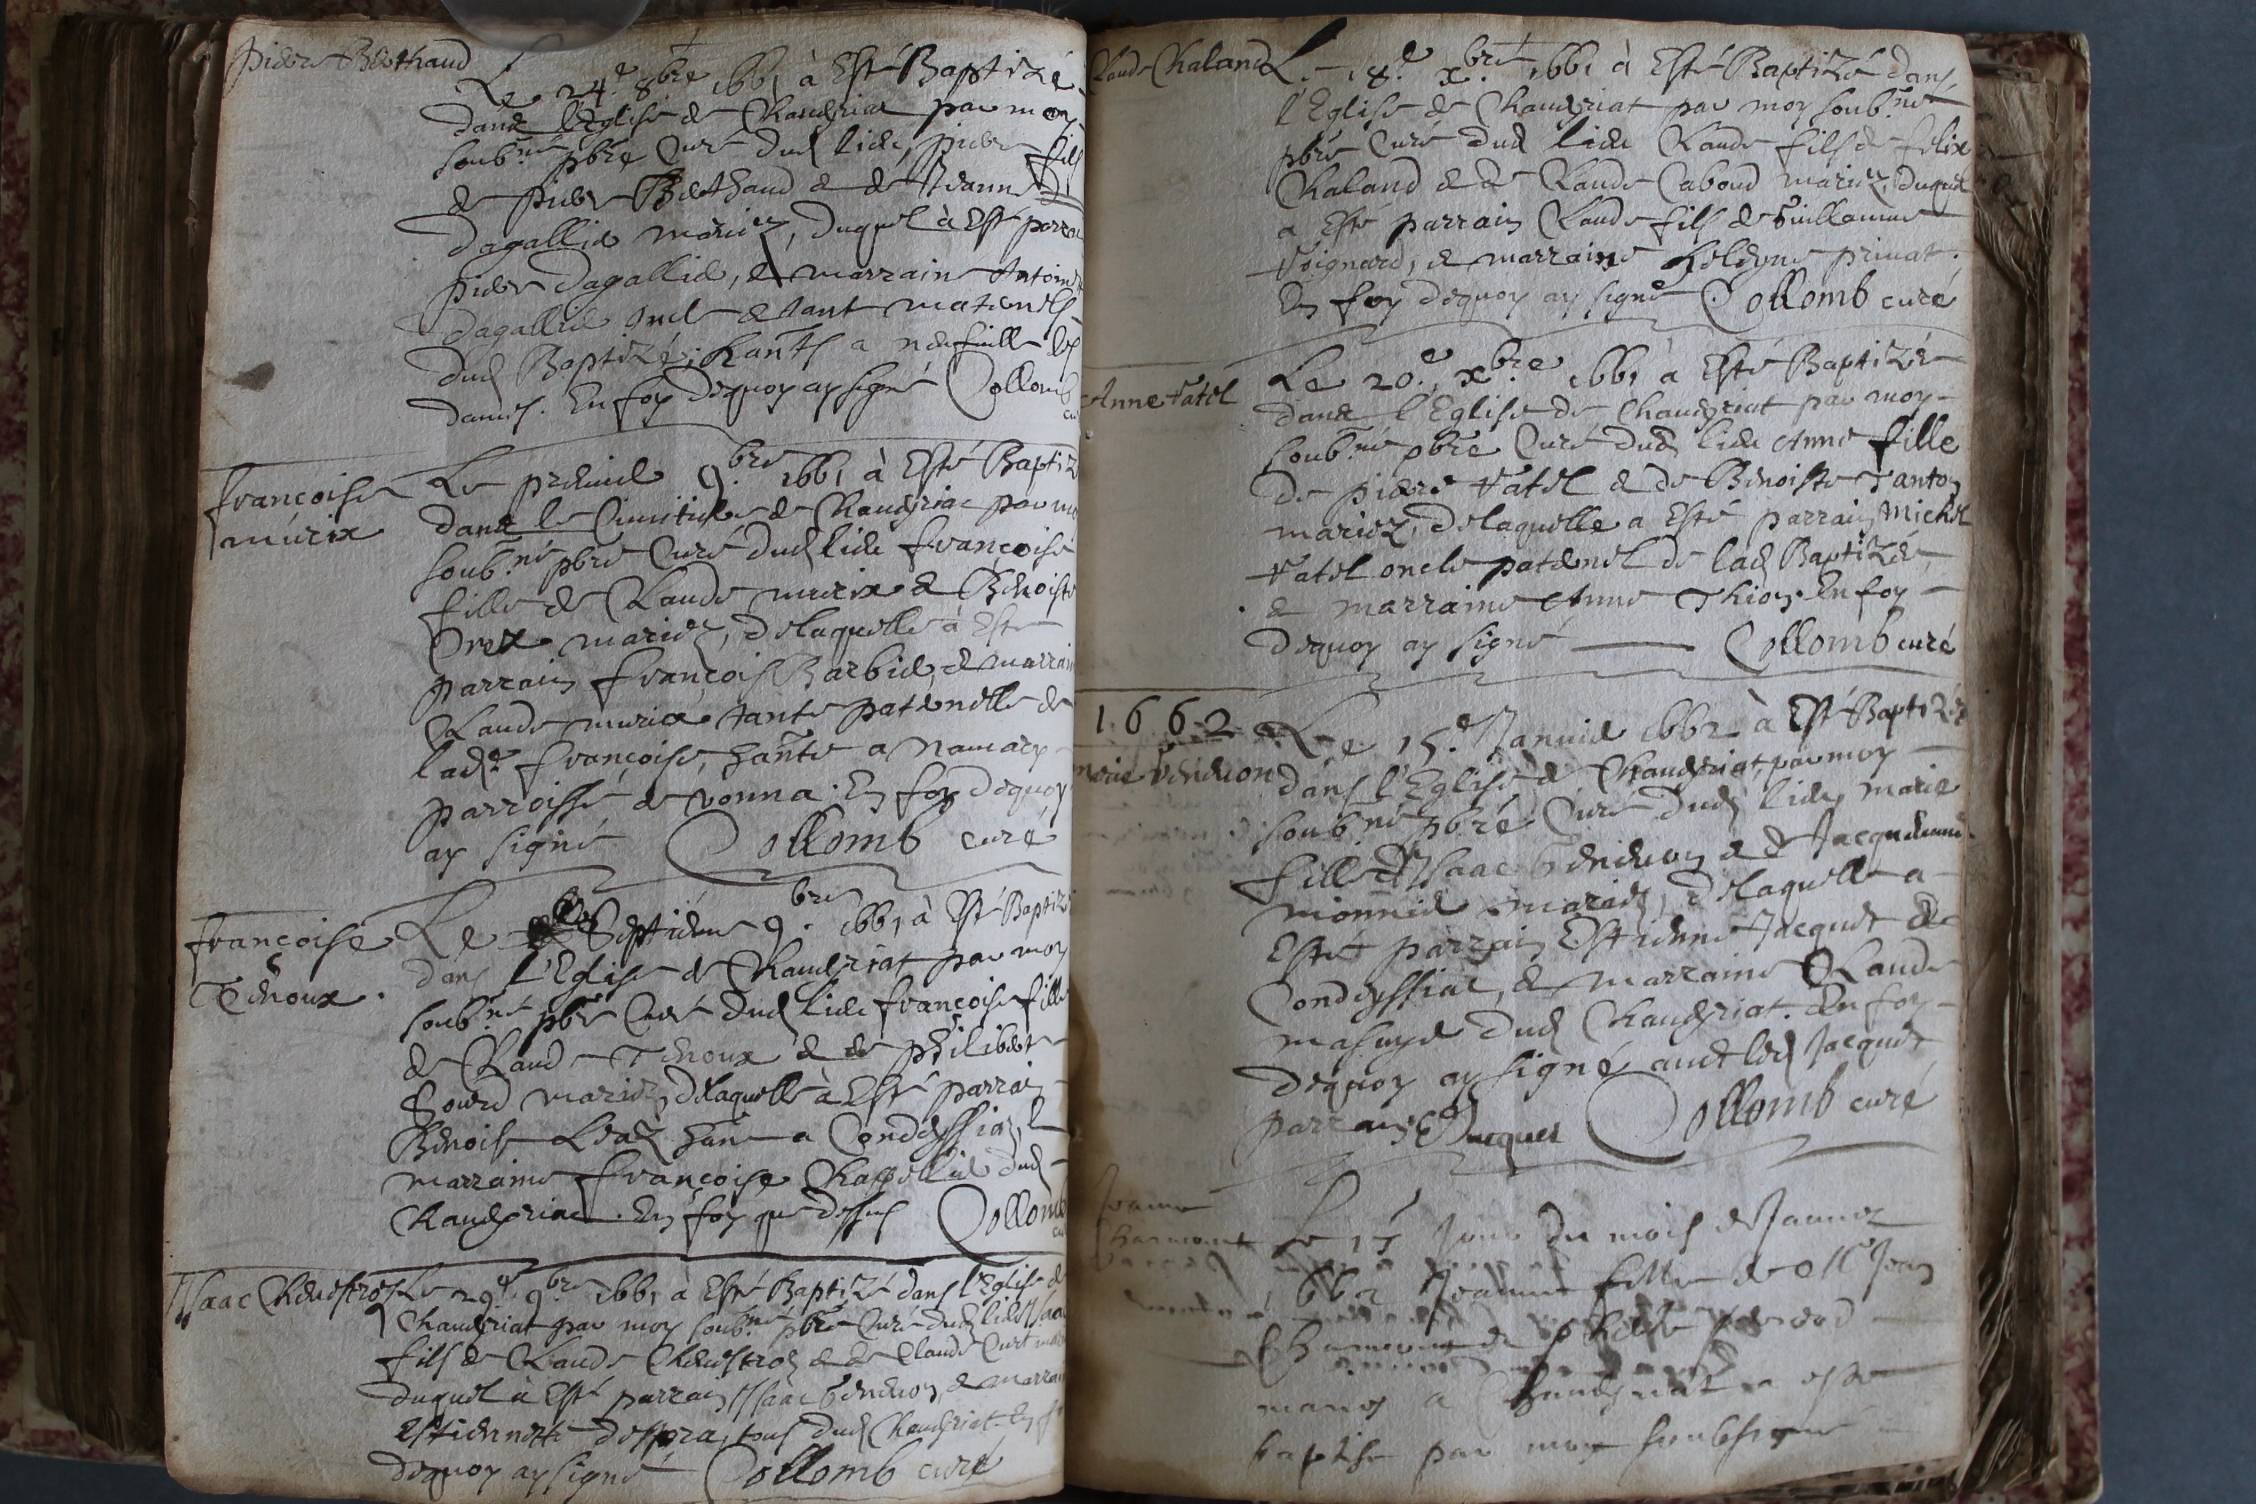 Pierre Berthaud
Le 24.e 8bre 1661 à Esté Baptizé
dans l'Eglise de Chaueyriat par moy
soub.né pbre Curé dud lieu, pierre fils
de pierre Berthaud & de Jeanne
dagallier mariez, duquel à Esté parrai
pierre dagallier, & marraine Antoine
dagallier oncle & tante maternels
dud Baptizé, hants a neufuille les
dames. En foy dequoy ay signé Collomb
cu
françoise
murix
Le premier 9.bre 1661 à Esté Baptizé
dans le Cimitiere de Chaueyriac par mo
soub.né pbre Curé dud lieu françoise
fille de Claude murix & Benoiste
mariez, delaquelle à Esté
parrain françois Barbier, & marrain
Claude murice tante paternelle de
lad.e françoise, hante a Namary
parroisse de vonna. En foy dequoy
ay signé Collomb curé
françoise
Tenoux.
Le Septieme 9.bre 1661 à Esté Baptizé
dans l'Eglise de Chaueyriat par moy
soub.né pbre Curé dud lieu françoise fille
de Claude Tenoux & de philiberte
Gourd mariez, delaquelle à Esté parrain
Benoist hant a Condeyssiaz, &
marraine françoise Chappellier dud
Chaueyriac. En foy que dessus Collomb
cu
Isaac Cheuestroz
Le 29.e 9.bre 1661 à Esté Baptizé dans l'Eglise de
Chaueyriat par moy soub.né pbre Curé dud lieu Isaac
fils de Claude Cheuestroz & de Claude Curt mar
duquel à Esté parrain Isaac Veneuon, & marrai
Estiennette despra, tous dud Chaueyriat. En fo
dequoy ay signé Collomb curé
Claude Chaland
Le 18.e xbre 1661 à Esté Baptizé dans
l'Eglise de Chaueyriat par moy soub.né
pbre Curé dud lieu Claude fils de felix
Chaland & de Claude Caboud mariez, duquel
a Esté parrain Claude fils de Guillaume
Voignard, & marraine heleyne priuat.
En foy dequoy ay signé Collomb curé
Anne Vatel
Le 20.e xbre 1661 à Esté Baptizée
dans l'Eglise de Chaueyriat par moy
soub.né pbre Curé dud lieu Anne fille
de pierre Vatel & de Benoiste Tanton
mariez, delaquelle a Esté parrain Michel
Vatel oncle paternel de lad Baptizée,
& marraine Anne Thion. En foy
dequoy ay signé Collomb curé
1662
Marie Veneuon
Le 15.e Januier 1662 à Esté Baptizée
dans l'Eglise de Chaueyriat, par moy
soub.né pbre Curé dud lieu, marie
fille d'Isaac Veneuon & de Jacquemme
monnier mariez, delaquelle a
Esté parrain Estienne Jacquet de
Condeyssiat, & marraine Claude
masuyer dud Chaueyriat. En foy
dequoy ay signé auec led Jacquet
parrain Jacquet Collomb curé
Jeanne
Chamont
Le 15 Jour du mois de Januier
1662 Jeanne fille de Me Jean
Chamont & de
mariez a Chaueyriat a esté
baptisé par moy soubsigné